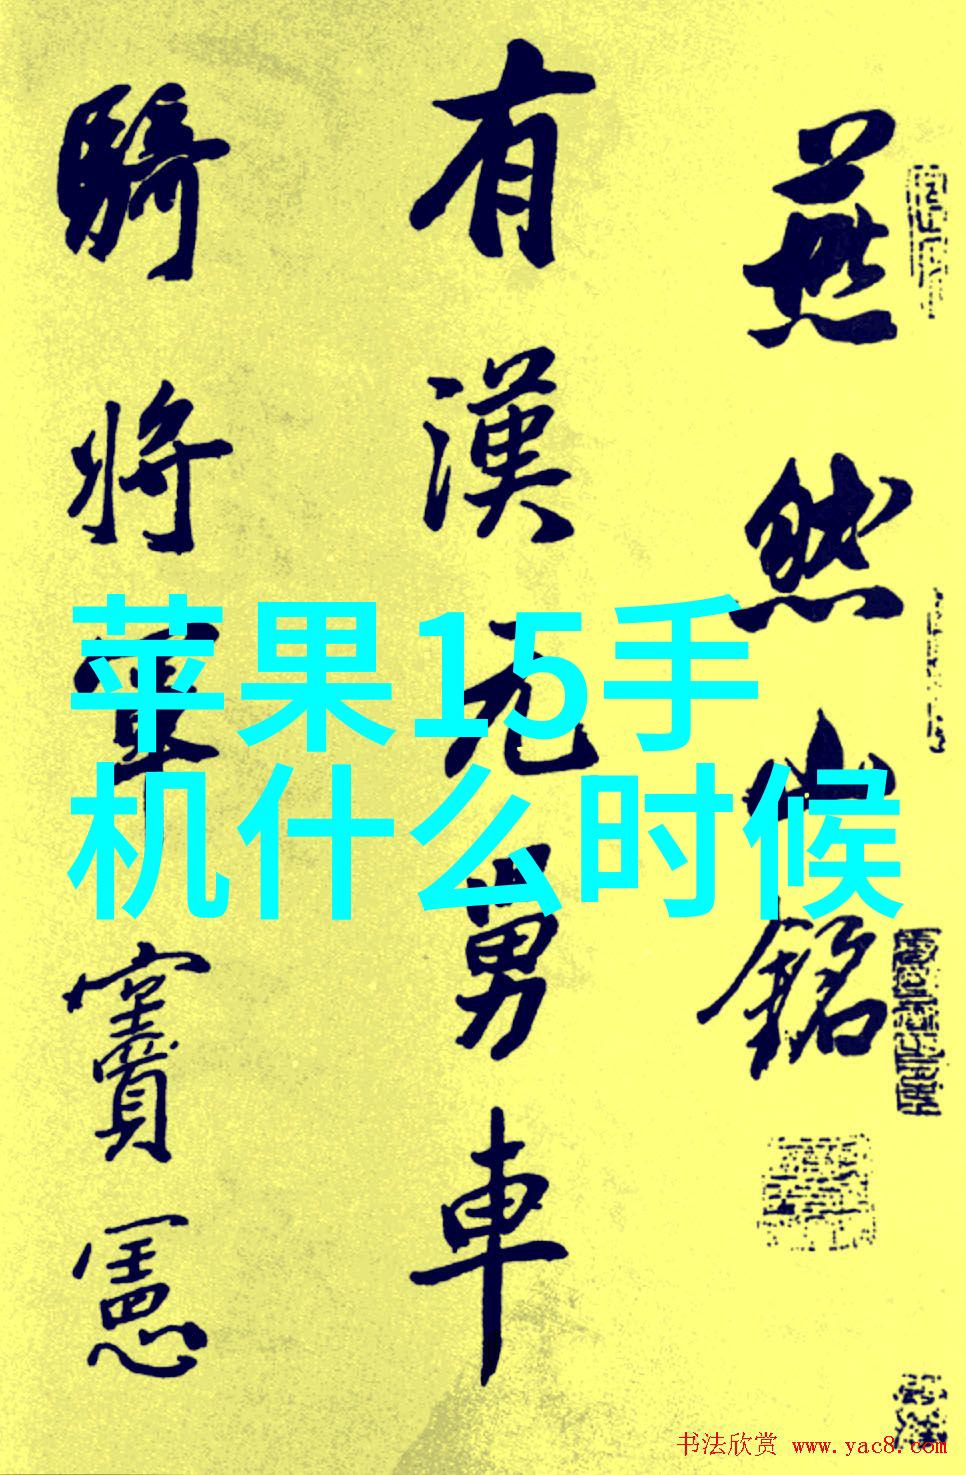 燕然山銘
有漢元舅車
騎將軍竇憲
苹果15手
机什么时候
书法欣赏 www.yac8.com